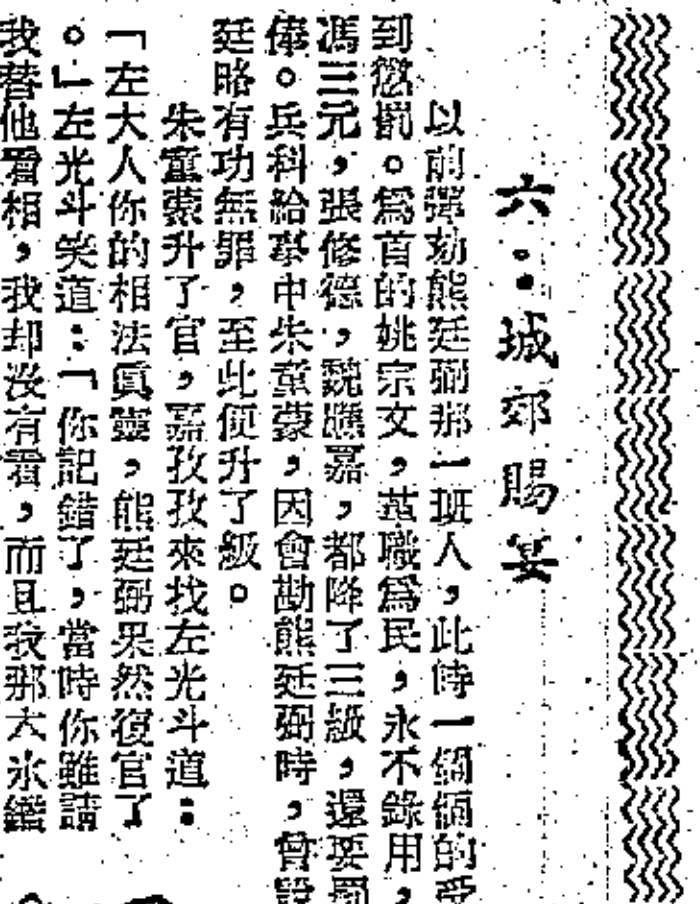 六：城郊賜宴
以前彈劾熊廷弼那一班人，此時一個個的受
到懲罰。爲首的姚宗文，革職爲民，永不錄用，
馮三元，張修德，魏應嘉，都降了三級，還要罰
俸。兵科給事中朱童蒙，因會勘熊廷弼時，曾說
廷略有功無罪，至此便升了級。
朱童蒙升了官，嘉孜孜來找左光斗道：
「左大人你的相法眞靈，熊廷弼果然復官了
。」左光斗笑道：「你記錯了，當時你雖請
我替他看相，我却沒有看，而且我那大氷鑑